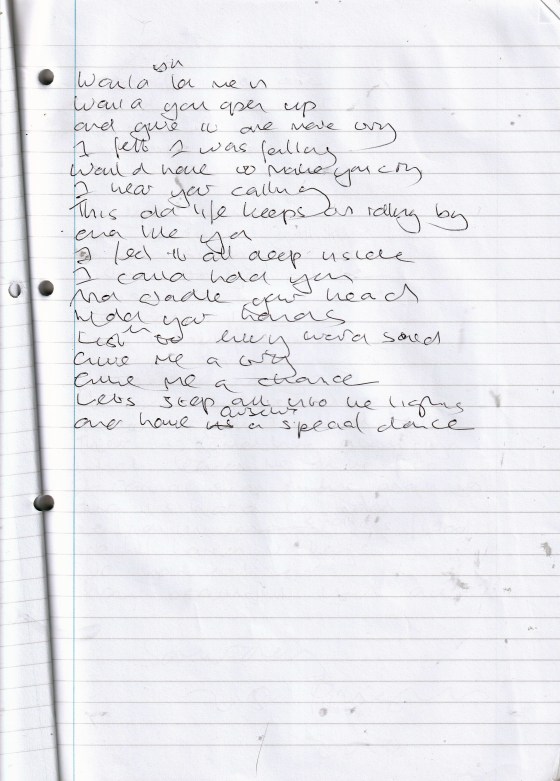 Would you let me in
Would you open up
and give it one more try
I felt I was falling
Would hate to make you cry
I hear you calling
This old life keeps on rolling by
and like you
I feel it all deep inside
I could hold you
And cradle your head
Hold your hands
Listen to every word said
Give me a try
Give me a chance
Lets step all into the lights
and have a special dance